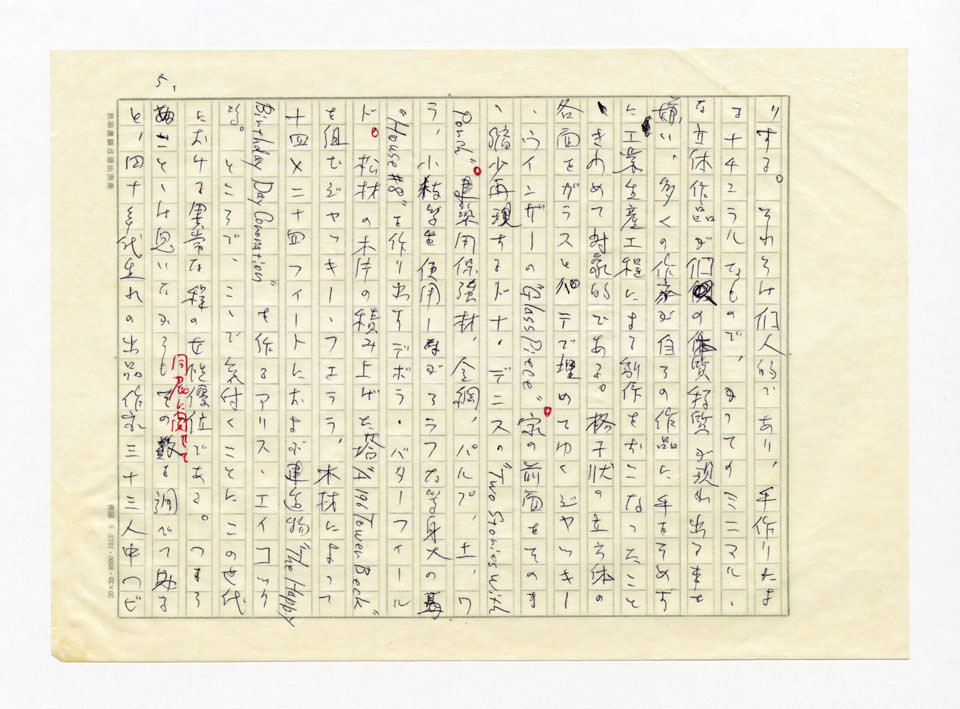 5.
りする。それらは個人的であり、手作りによ
るナチュラルなもので、かつてのミニマル・
な立体作品が個々の体質・物質が現れ出る事を
嫌い、多くの作家が自らの作品に手をそめず
に工業生産工程による制作をおこなったこと
ときわめて対象的である。格子状の立方体の
各面をガラスとパテで埋めてゆくジャッキー
・ウインザーの"Glass Piece"。家の前面をそのま
ま縮少再現するドナ・デニスの"Two Stories with
Porch"。建築用保強材、金網、パルプ、土、ワ
ラ、小枝等を使用しながらラフな等身大の
"House #8"を作り出すデボラ・バターフィール
ド。松材の木片の積み上げた塔"A196 Tower Beck"
を組むジャッキー・フェララ、木材によって
十四×二十四フィートにおよぶ建造物"The Happy
Birthday Day Coronation"を作るアリス・エイコック
等。ところで、ここで気付くことに、この世代
における異常な程の女性優位である。つまら
ぬこととは思いながらもその数を調べて みる
同展に関して
と、四十年代生れの出品作家三十三人中